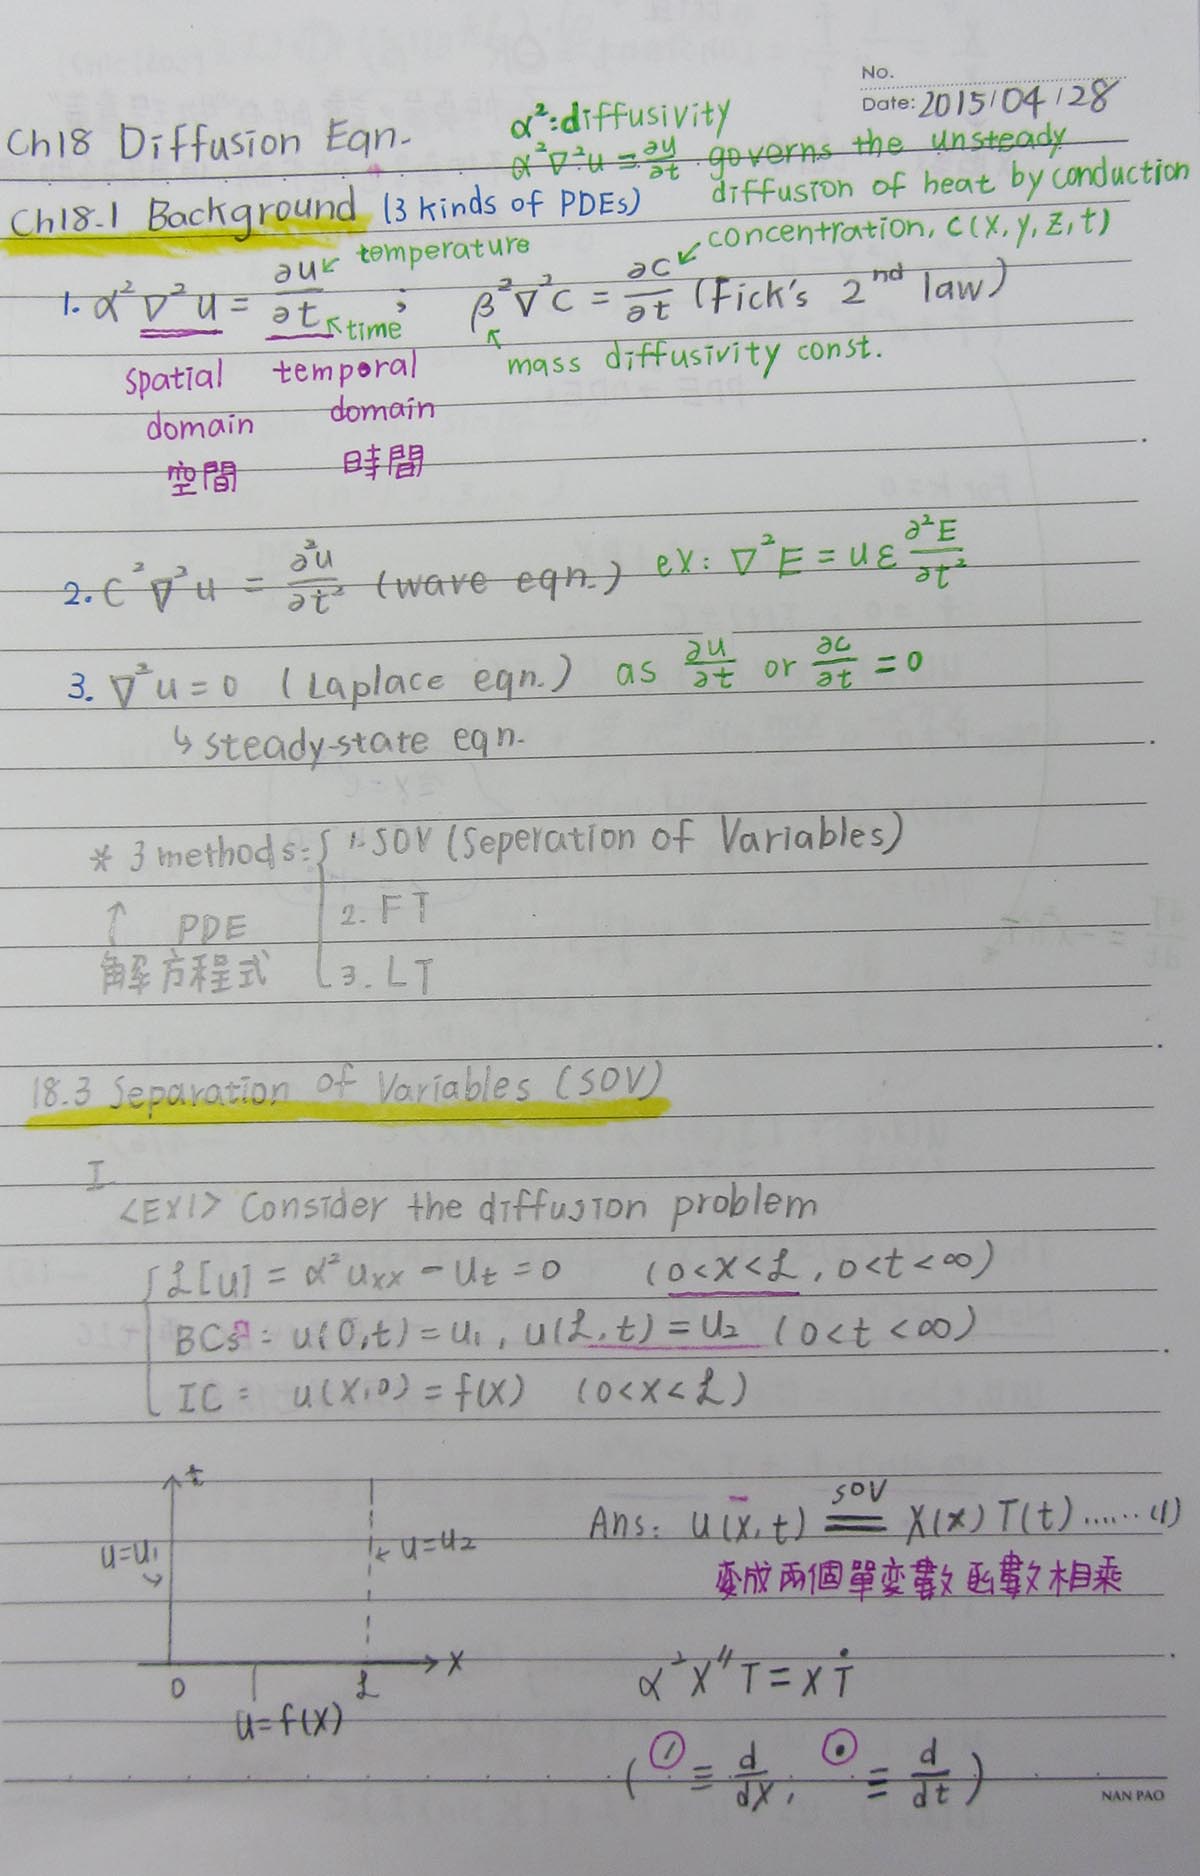 No.
Date: 2015/04/28
Ch18 Diffusion Eqn.
α²: diffusivity
α²∇²u = ∂u/∂t governs the unsteady
diffusion of heat by conduction
Ch18.1 Background (3 kinds of PDEs)
temperature
concentration, c(x, y, z, t)
1. α²∇²u = ∂u/∂t ; β²∇²C = ∂C/∂t (Fick's 2nd law)
time
mass diffusivity const.
spatial temporal
domain domain
空間 時間
2. C²∇²u = ∂²u/∂t² (wave eqn.) ex: ∇²E = uε ∂²E/∂t²
3. ∇²u = 0 (Laplace eqn.) as ∂u/∂t or ∂c/∂t = 0
↳ steady-state eqn.
* 3 methods: { 1. SOV (Seperation of Variables)
2. FT
↑ PDE
解方程式
3. LT
18.3 Separation of Variables (SOV)
I
<EX1> Consider the diffusion problem
L[u] = α²uxx - ut = 0 (0<x<L, 0<t<∞)
BCs: u(0,t) = u1, u(L,t) = u2 (0<t<∞)
IC: u(x,0) = f(x) (0<x<L)
t
u=u1
u=u2
0 L x
u=f(x)
Ans: u(x,t) SOV = X(x) T(t) ...... (1)
變成兩個單變數函數相乘
α²X''T = XṪ
( ′ ≡ d/dx, • ≡ d/dt )
NAN PAO